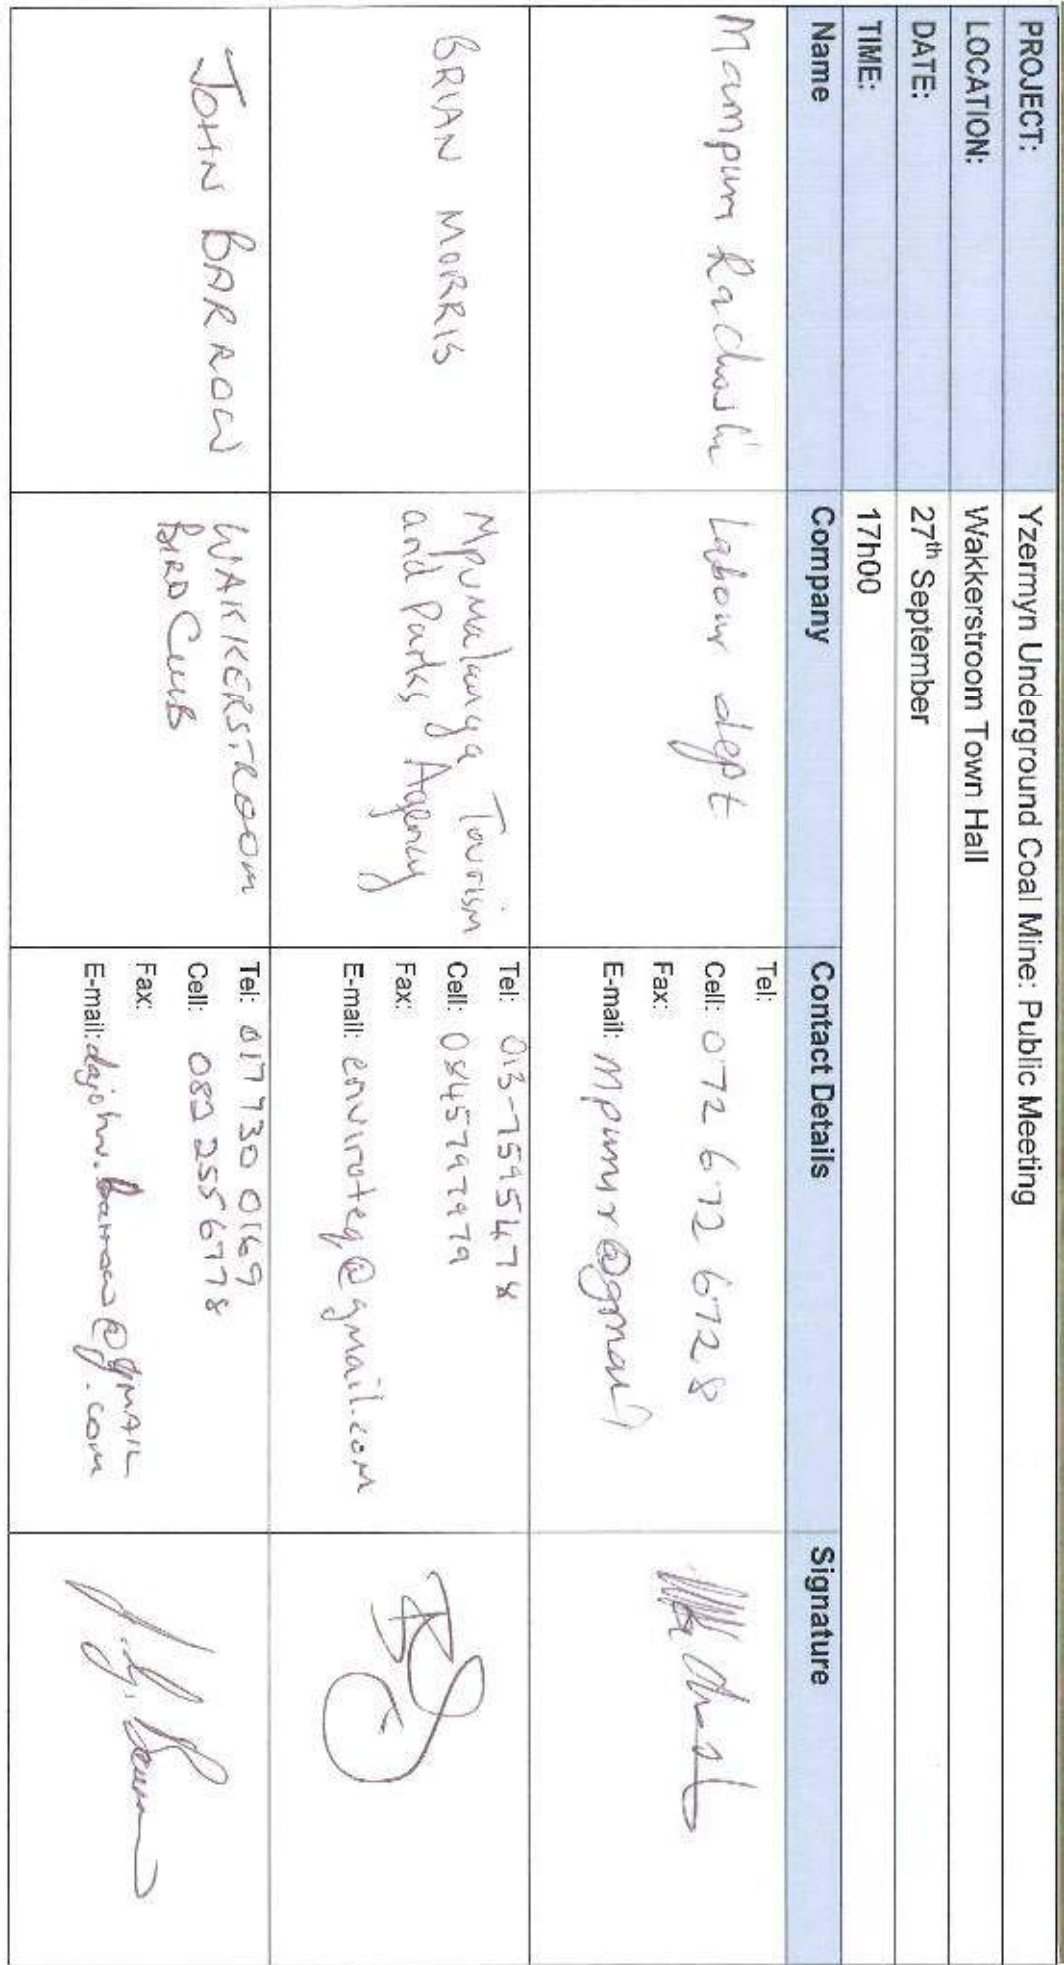 PROJECT: Yzermyn Underground Coal Mine: Public Meeting
LOCATION: Wakkerstroom Town Hall
DATE: 27th September
TIME: 17h00
Name Company Contact Details Signature
Mampum Labour dept
Tel:
Cell: 072 672 6728
Fax:
E-mail: mpumr@gmail
BRIAN MORRIS
Mpumalanga Tourism
and Parks Agency
Tel: 013-7595478
Cell: 0845797979
Fax:
E-mail: enviroteq@gmail.com
JOHN BARROW
WAKKERSTROOM
BIRD CLUB
Tel: 017 730 0169
Cell: 082 255 6778
Fax:
E-mail: dajohn.barrow@gmail
.com